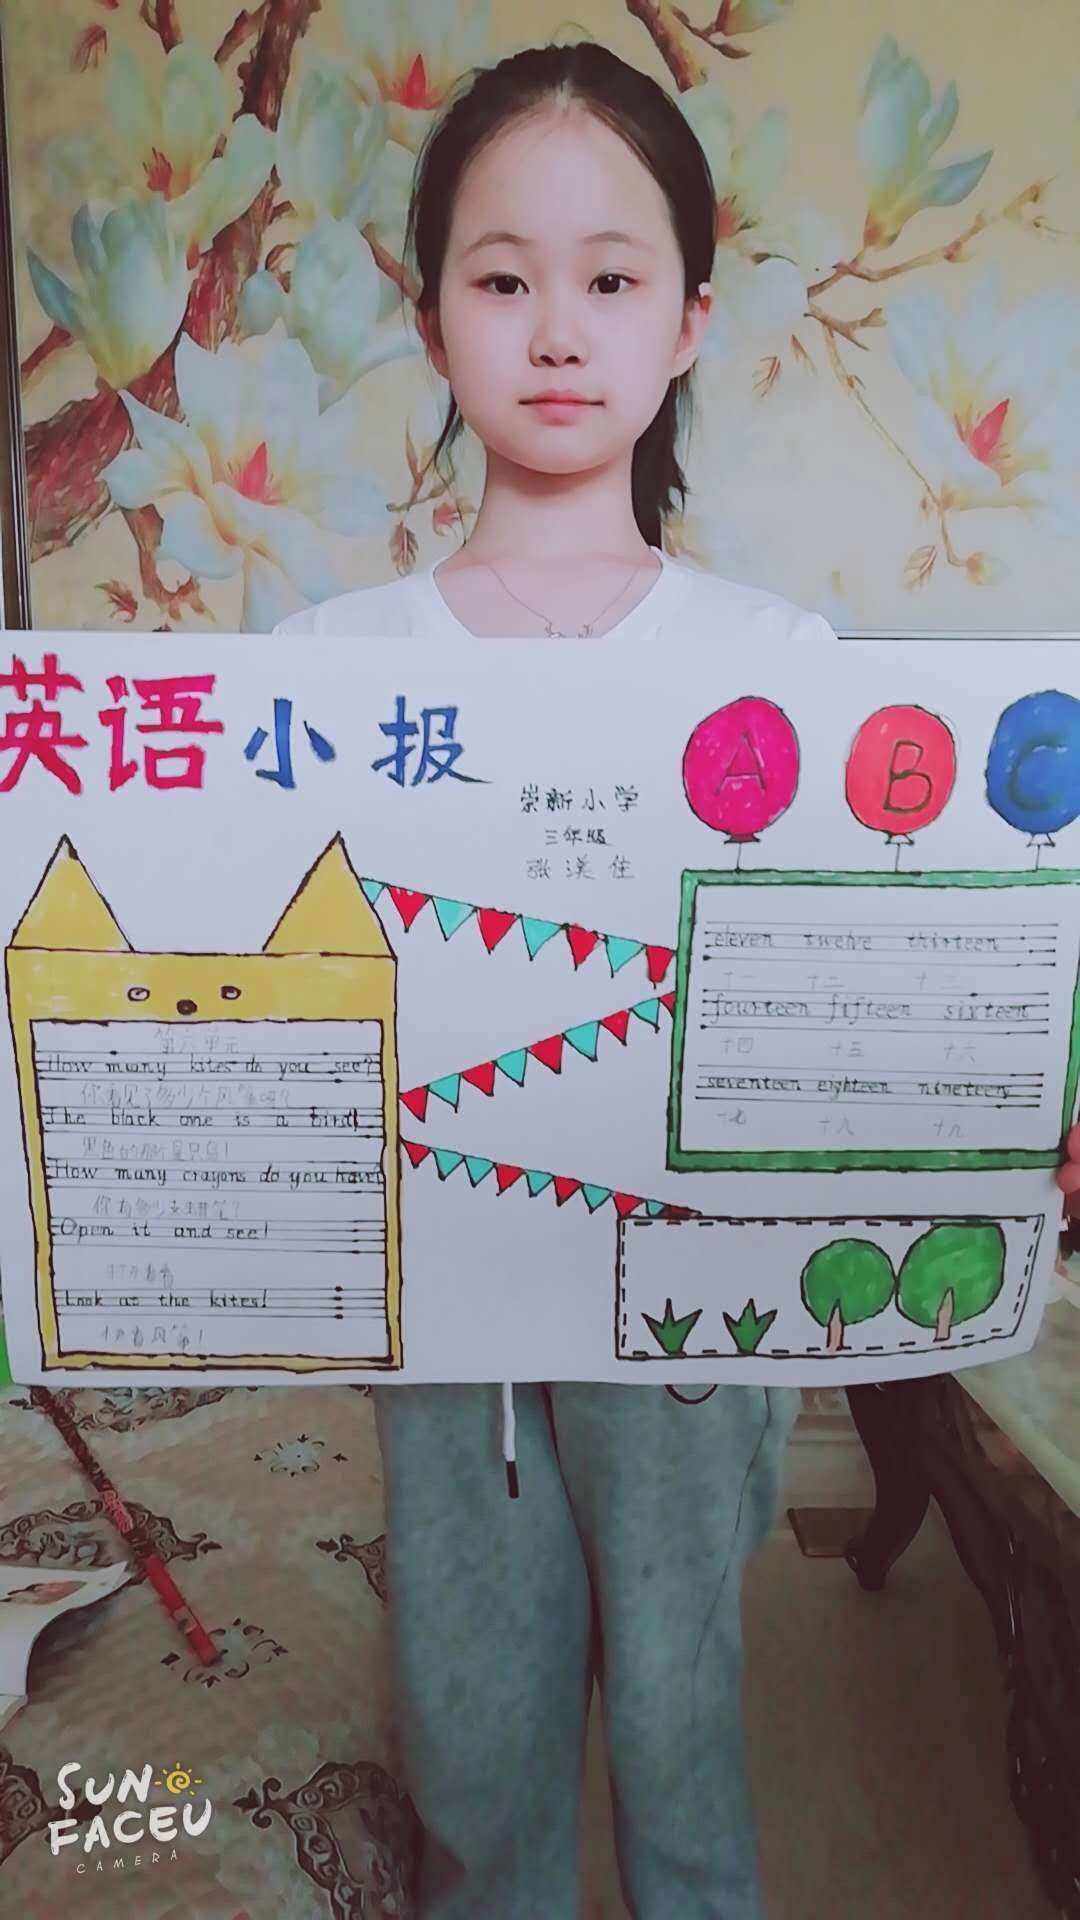 英语小报
崇新小学
三年级
张漾佳
A B C
第六单元
How many kites do you see?
你看见了多少个风筝呀?
The black one is a bird!
黑色的那个是只鸟!
How many crayons do you have?
你有多少支蜡笔?
Open it and see!
打开看看
Look at the kites!
快看风筝!
eleven twelve thirteen
十一 十二 十三
fourteen fifteen sixteen
十四 十五 十六
seventeen eighteen nineteen
十七 十八 十九
SUN
FACEU
CAMERA